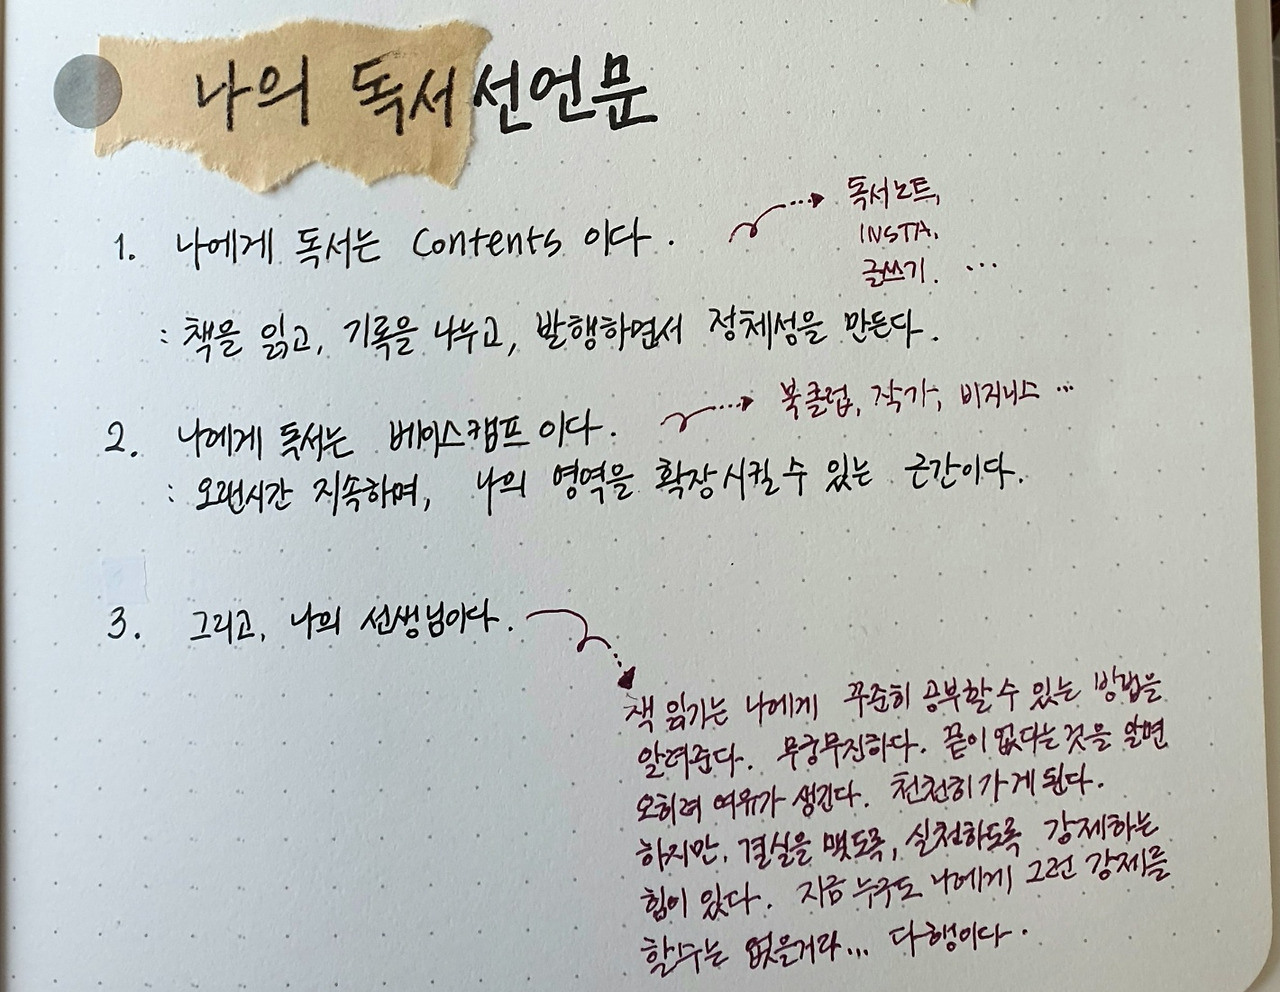 나의 독서선언문
1. 나에게 독서는 Contents 이다.
독서노트,
INSTA.
글쓰기. ...
: 책을 읽고, 기록을 나누고, 발행하면서 정체성을 만든다.
2. 나에게 독서는 베이스캠프이다.
북클럽, 작가, 비지니스 ...
: 오랜시간 지속하며, 나의 영역을 확장시킬 수 있는 근간이다.
3. 그리고, 나의 선생님이다.
책 읽기는 나에게 꾸준히 공부할 수 있는 방법을
알려준다. 무궁무진하다. 끝이 없다는 것을 알면
오히려 여유가 생긴다. 천천히 가게 된다.
하지만, 결실을 맺도록, 실천하도록 강제하는
힘이 있다. 지금 누구도 나에게 그런 강제를
할수는 없을거라... 다행이다.